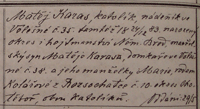 Matěj Karas, katolík, nádeník v
Volešné č. 35 tamtéž 18 24/2 83 narozený
okres i hejtmanství Něm. Brod, manžel
ský syn Matěje Karasa, domkáře ve Voleš
né č. 38 a jeho manželky Marie rozen
Kolářové z Rozsochatce č. 10 okres Cho
těboř, obou katolíků.